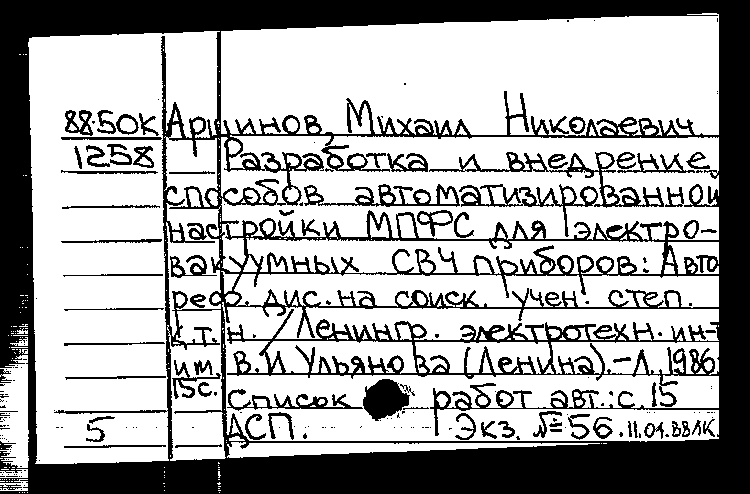 88-50К Аршинов, Михаил Николаевич.
1258 Разработка и внедрение
способов автоматизированной
настройки МПФС для электро-
вакуумных СВЧ приборов: Авто
реф. дис. на соиск. учен. степ.
к.т.н. / Ленингр. электротехн. ин-т
им. В.И. Ульянова (Ленина).-Л., 1986.
15с.
Список работ авт.: с. 15
5 ДСП. Экз. №56. 11.01.88 ЛК.